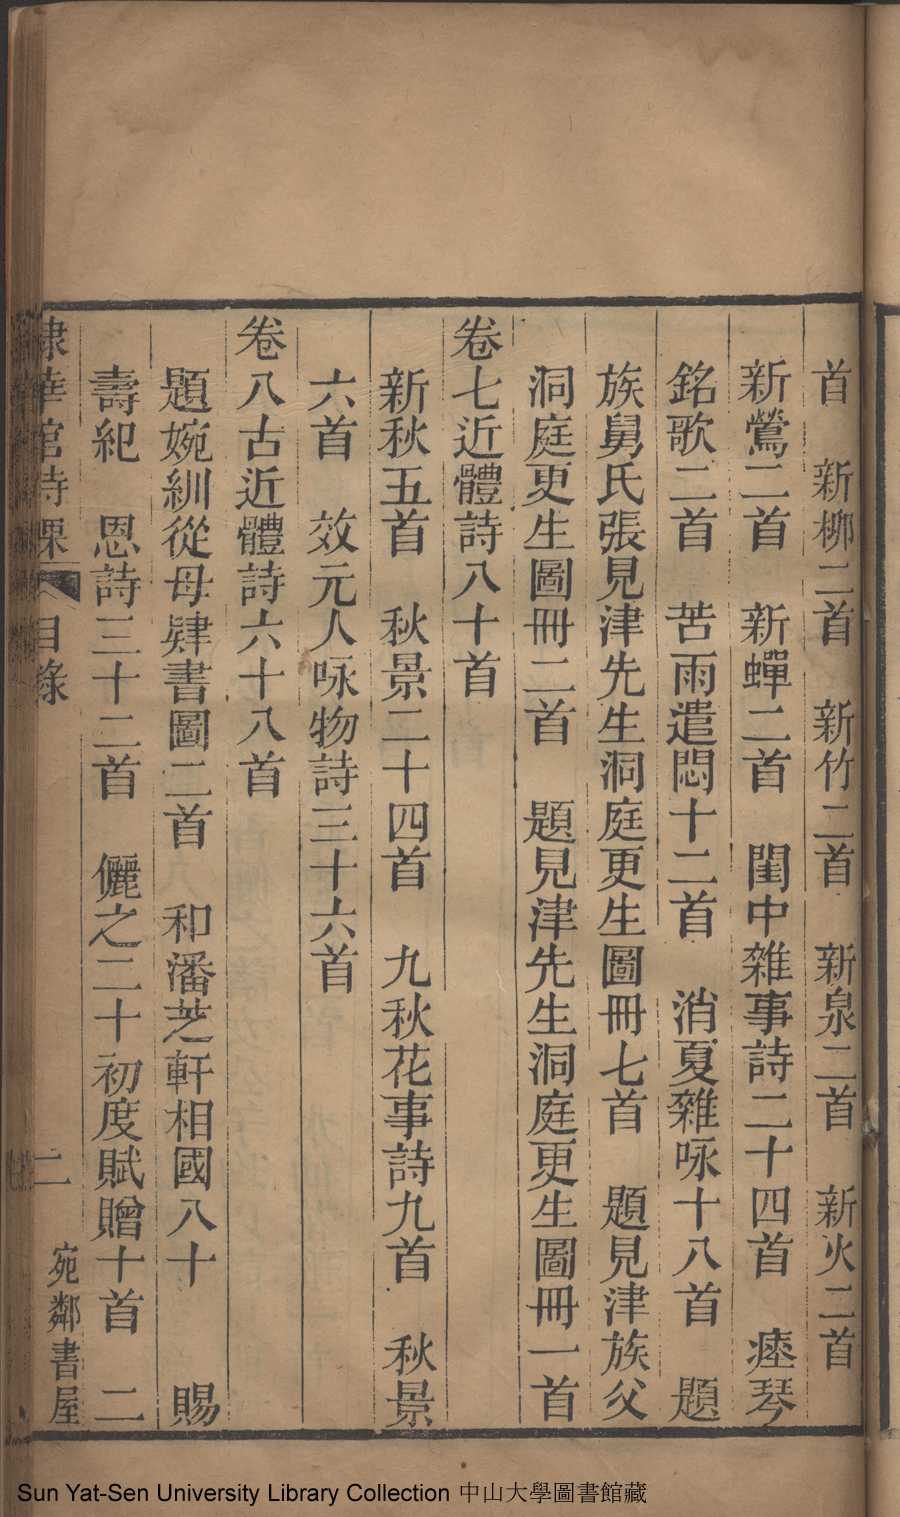 首　新柳二首　新竹二首　新泉二首　新火二首
新鶯二首　新蟬二首　閨中雜事詩二十四首　瘞琴
銘歌二首　苦雨遣悶十二首　消夏雜咏十八首　題
族舅氏張見津先生洞庭更生圖冊七首　題見津族父
洞庭更生圖冊二首　題見津先生洞庭更生圖冊一首
卷七近體詩八十首
新秋五首　秋景二十四首　九秋花事詩九首　秋景
六首　效元人咏物詩三十六首
卷八古近體詩六十八首
題婉紃從母肄書圖二首　和潘芝軒相國八十　賜
壽紀　恩詩三十二首　儷之二十初度賦贈十首　二
棣華館詩課　目錄　二　宛鄰書屋
Sun Yat-Sen University Library Collection 中山大學圖書館藏